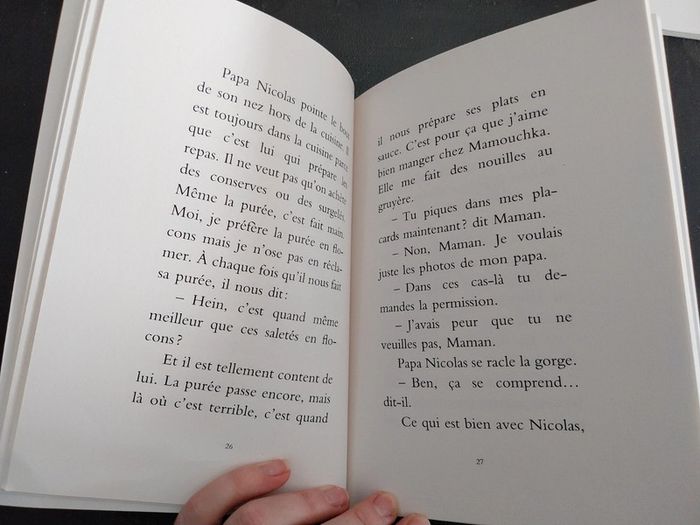 Papa Nicolas pointe le bout
de son nez hors de la cuisine. Il
est toujours dans la cuisine parce
que c'est lui qui prépare les
repas. Il ne veut pas qu'on achète
des conserves ou des surgelés.
Même la purée, c'est fait main.
Moi, je préfère la purée en flo-
cons mais je n'ose pas en récla-
mer. À chaque fois qu'il nous fait
sa purée, il nous dit :
– Hein, c'est quand même
meilleur que ces saletés en flo-
cons ?
Et il est tellement content de
lui. La purée passe encore, mais
là où c'est terrible, c'est quand
26
il nous prépare ses plats en
sauce. C'est pour ça que j'aime
bien manger chez Mamouchka.
Elle me fait des nouilles au
gruyère.
– Tu piques dans mes pla-
cards maintenant ? dit Maman.
– Non, Maman. Je voulais
juste les photos de mon papa.
– Dans ces cas-là tu de-
mandes la permission.
– J'avais peur que tu ne
veuilles pas, Maman.
Papa Nicolas se racle la gorge.
– Ben, ça se comprend…
dit-il.
Ce qui est bien avec Nicolas,
27